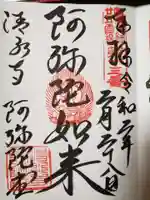 奉拝
令和二年
二月二十八日
阿弥陀如来
清水寺
阿弥陀堂